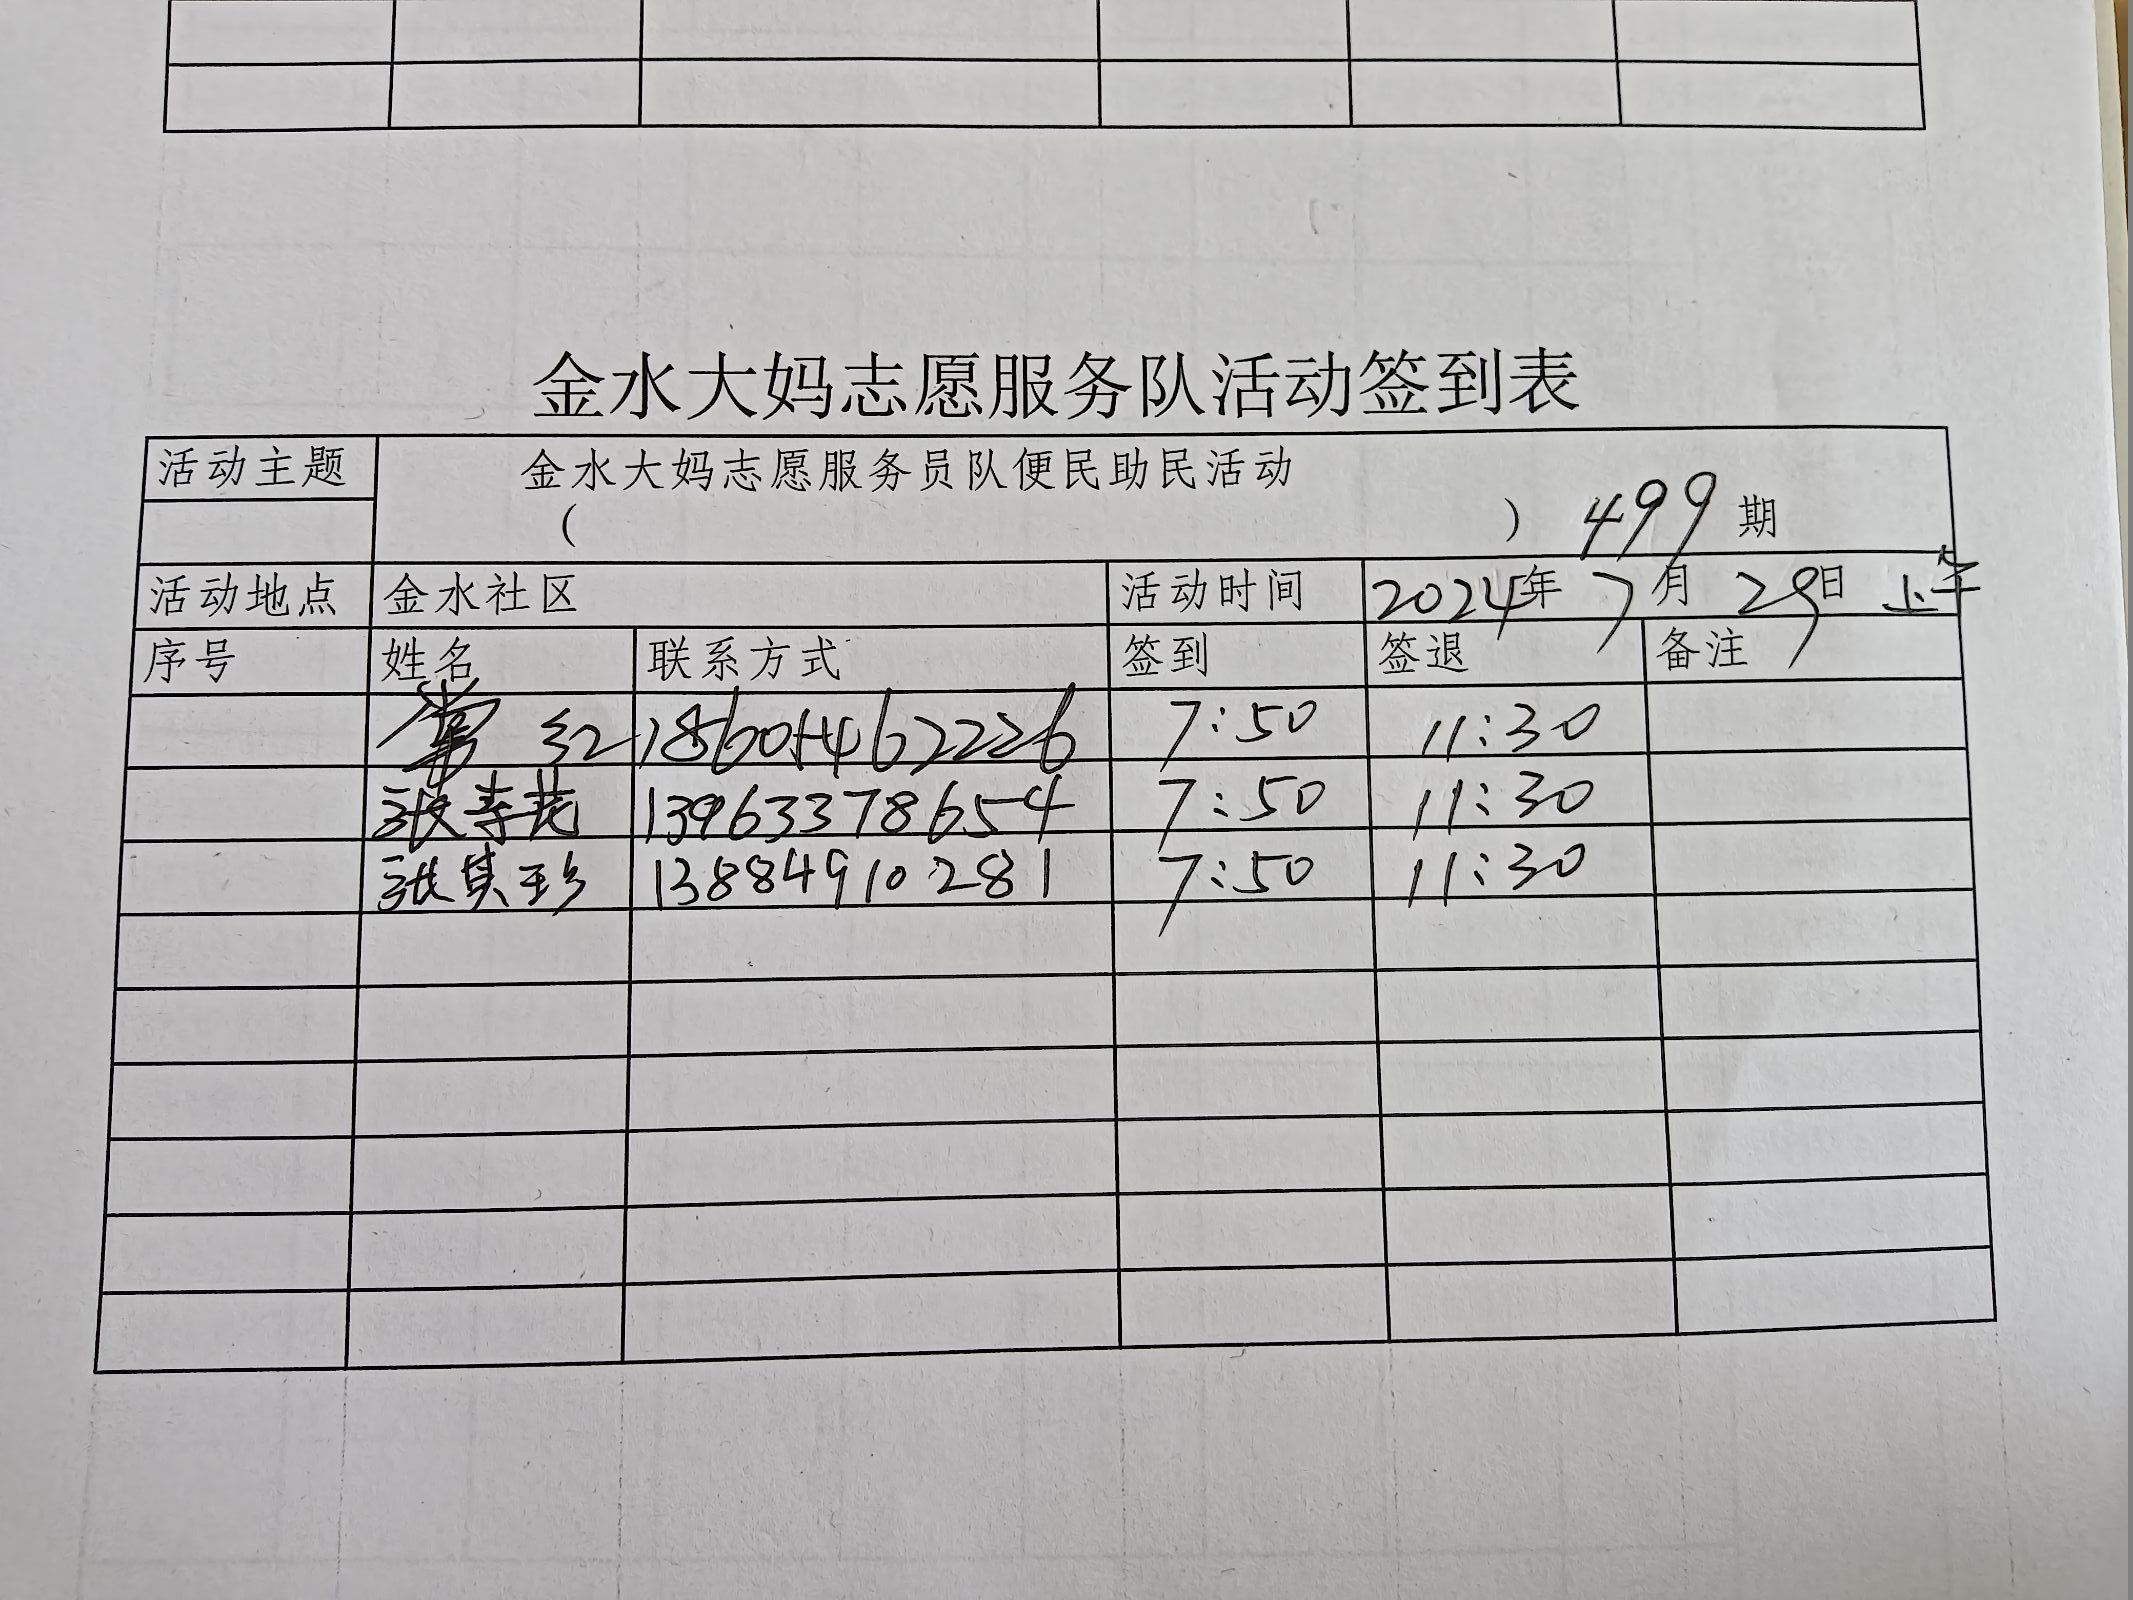 金水大妈志愿服务队活动签到表
活动主题 金水大妈志愿服务员队便民助民活动
( ) 499 期
活动地点 金水社区 活动时间 2024年 7月 29日 上午
序号 姓名 联系方式 签到 签退 备注
红 7:50 11:30
张春花 13963378654 7:50 11:30
张其珍 13884910281 7:50 11:30